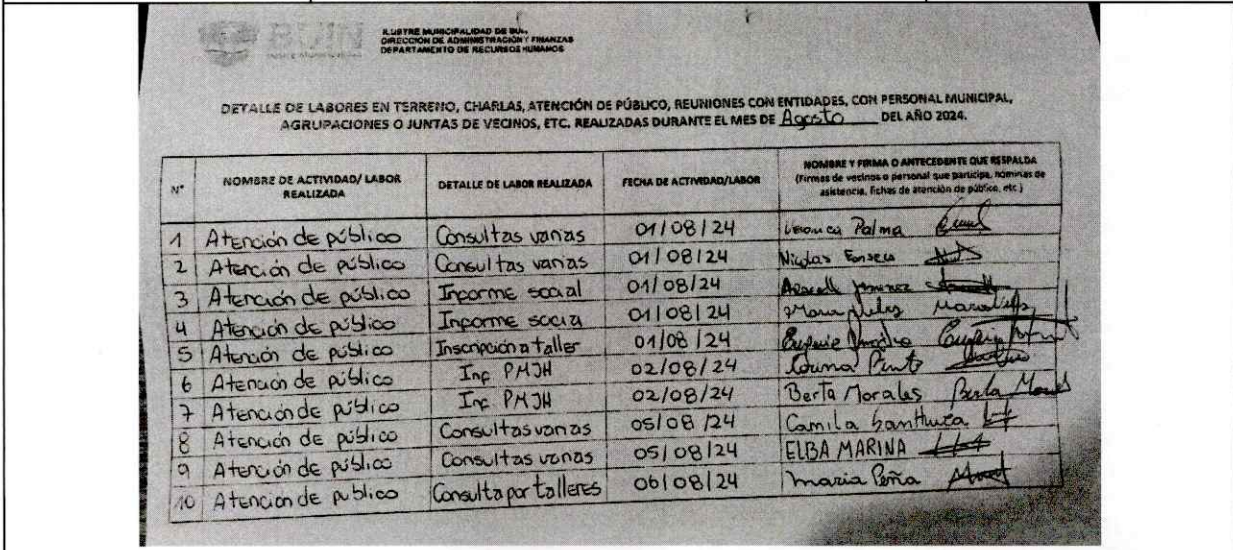 BUIN
ILUSTRE MUNICIPALIDAD DE BUIN
DIRECCIÓN DE ADMINISTRACIÓN Y FINANZAS
DEPARTAMENTO DE RECURSOS HUMANOS
DETALLE DE LABORES EN TERRENO, CHARLAS, ATENCIÓN DE PÚBLICO, REUNIONES CON ENTIDADES, CON PERSONAL MUNICIPAL,
AGRUPACIONES O JUNTAS DE VECINOS, ETC. REALIZADAS DURANTE EL MES DE Agosto DEL AÑO 2024.
N° NOMBRE DE ACTIVIDAD/ LABOR REALIZADA DETALLE DE LABOR REALIZADA FECHA DE ACTIVIDAD/LABOR NOMBRE Y FIRMA O ANTECEDENTE QUE RESPALDA (Firmas de vecinos o personal que participa, nóminas de asistencia, fichas de atención de público, etc.)
1 Atención de público Consultas varias 01/08/24 Veronica Palma
2 Atención de público Consultas varias 01/08/24 Nicolas Fonseca
3 Atención de público Informe social 01/08/24
4 Atención de público Informe social 01/08/24 Maria
5 Atención de público Inscripción a taller 01/08/24
6 Atención de público Inf PMJH 02/08/24 Pinto
7 Atención de público Inf PMJH 02/08/24 Berta Morales Berta
8 Atención de público Consultas varias 05/08/24 Camila
9 Atención de público Consultas varias 05/08/24 ELBA MARINA
10 Atención de publico Consulta por talleres 06/08/24 maria Peña